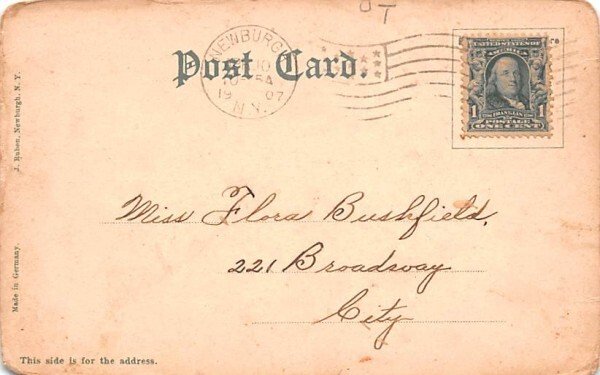 OT
Post Card.
NEWBURGH
10
19 07
N.Y.
UNITED STATES OF
AMERICA
1 1
FRANKLIN
POSTAGE
ONE CENT
Miss Flora Bushfield,
221 Broadway
City
J. Ruben, Newburgh, N. Y.
Made in Germany.
This side is for the address.